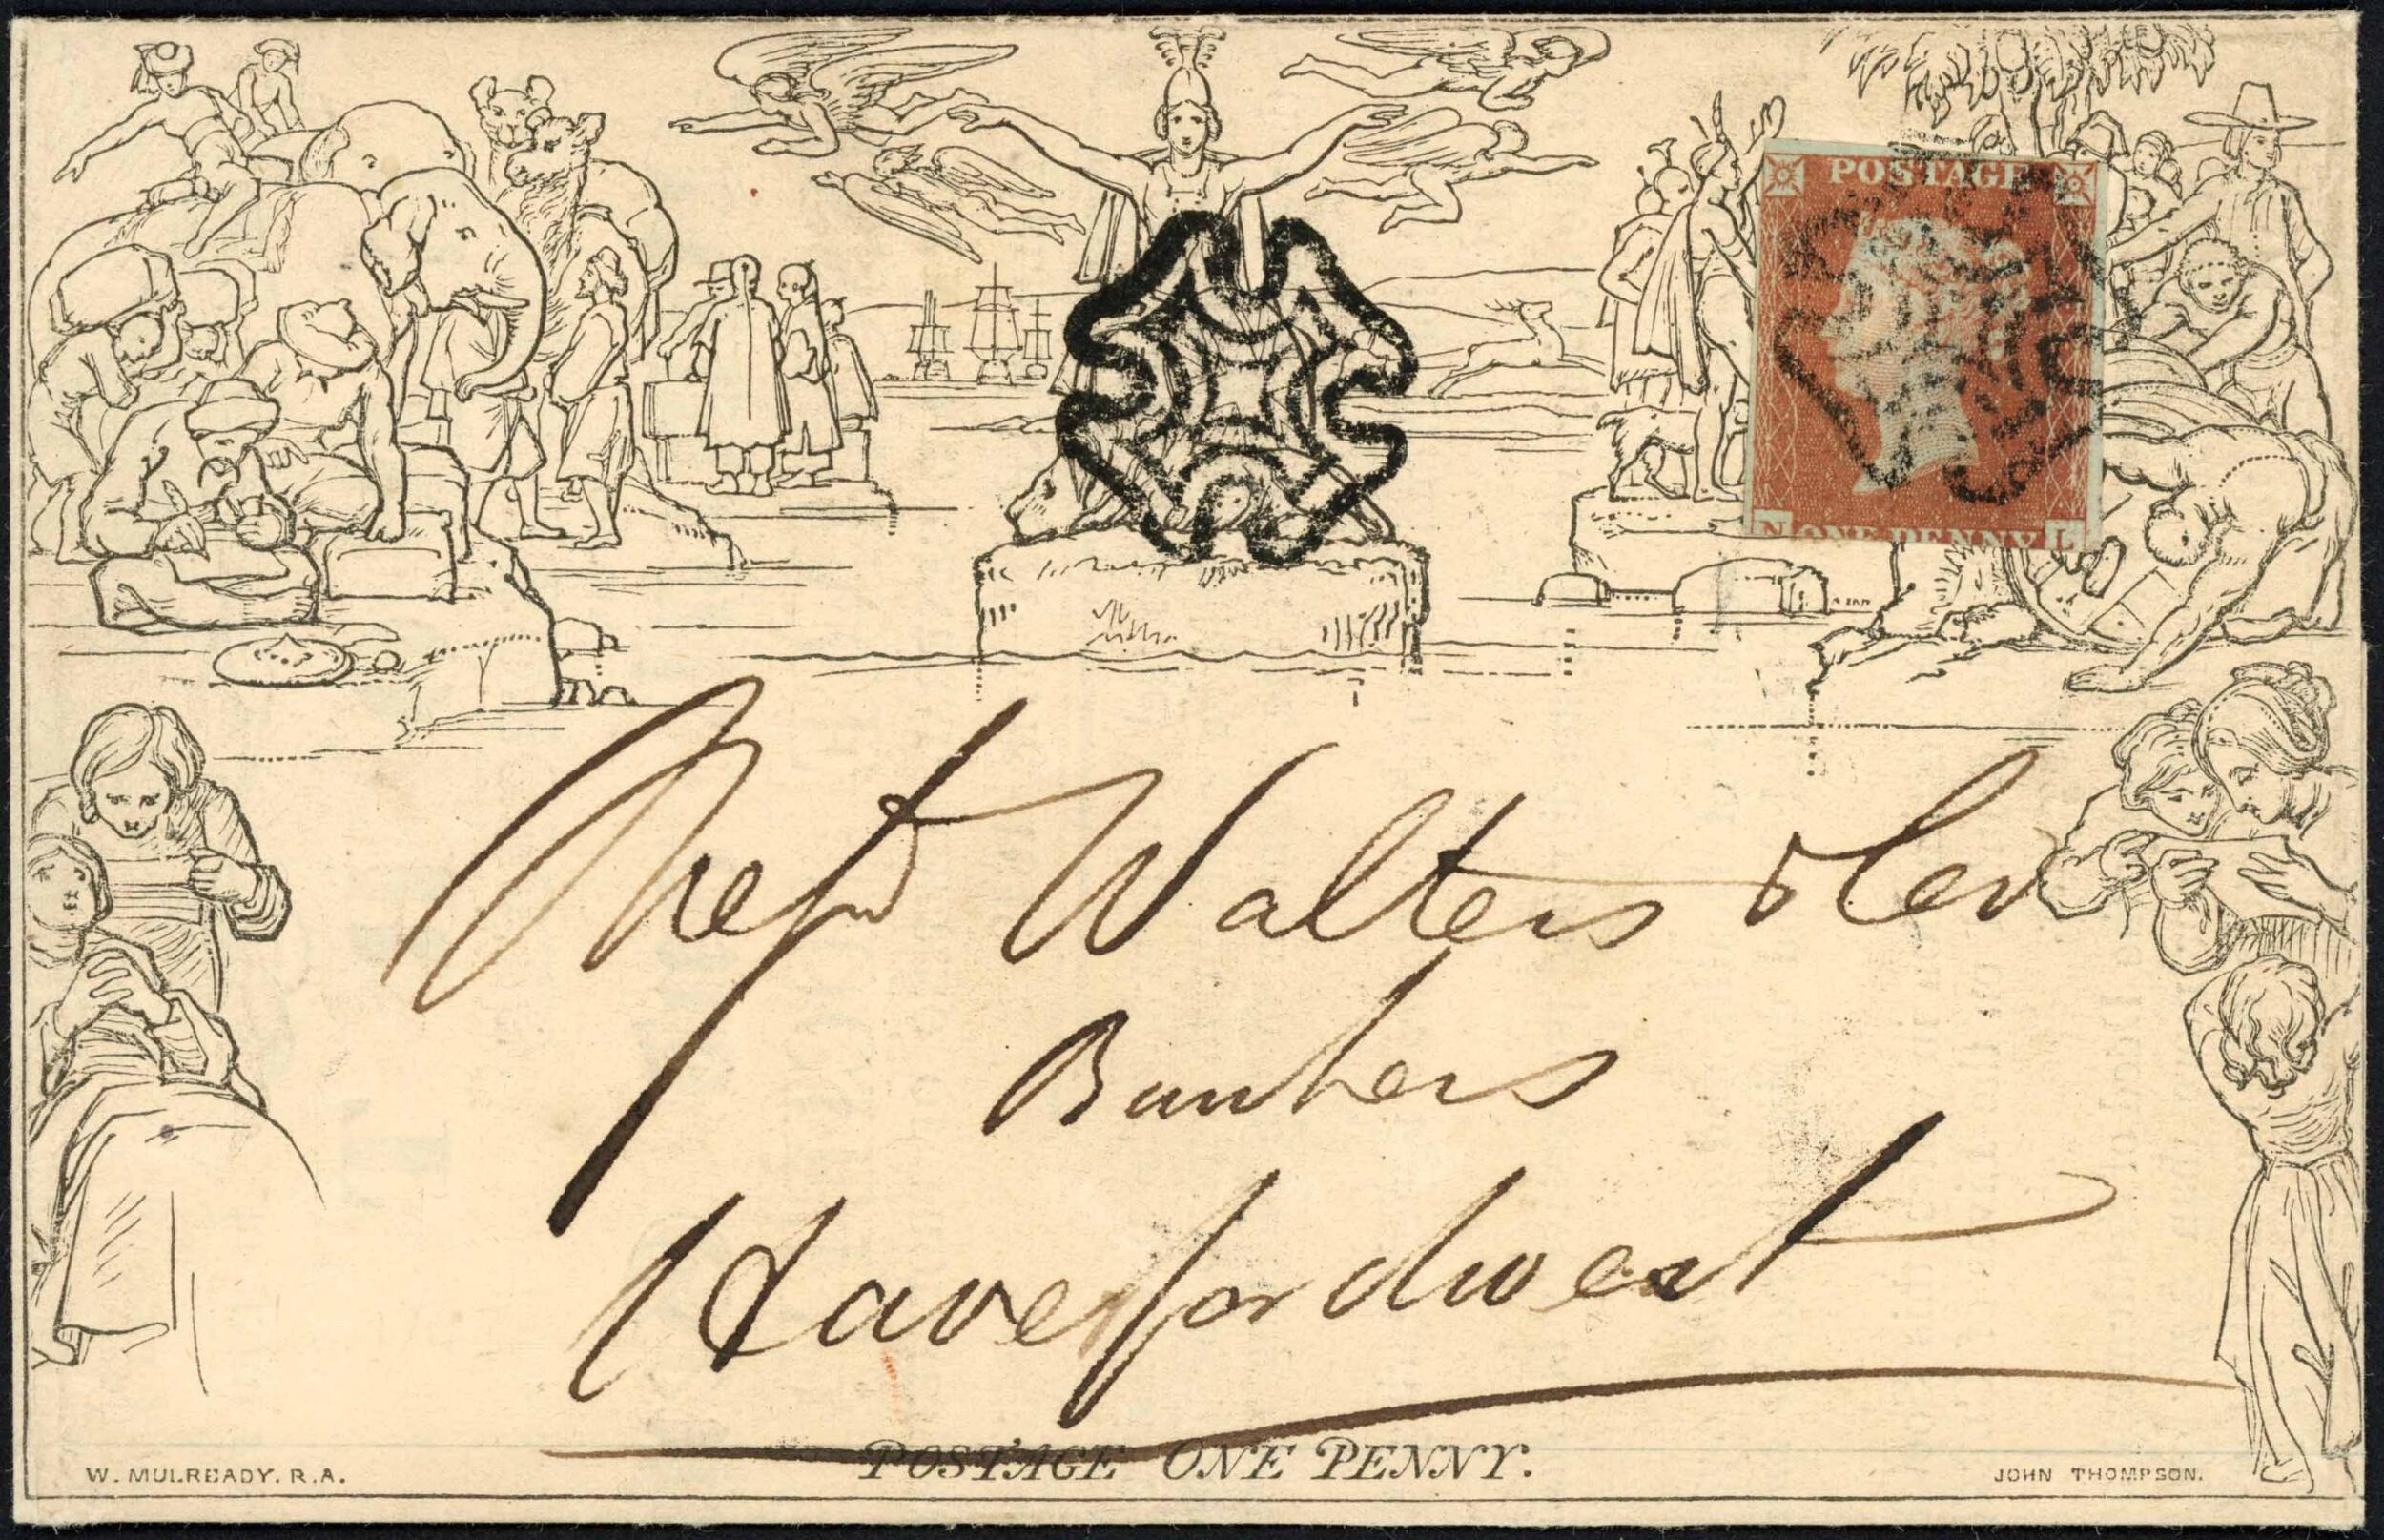 POSTAGE
N ONE PENNY L
Messrs Walters &
Bankers
Haverfordwest
POSTAGE ONE PENNY.
W. MULREADY. R.A.
JOHN THOMPSON.